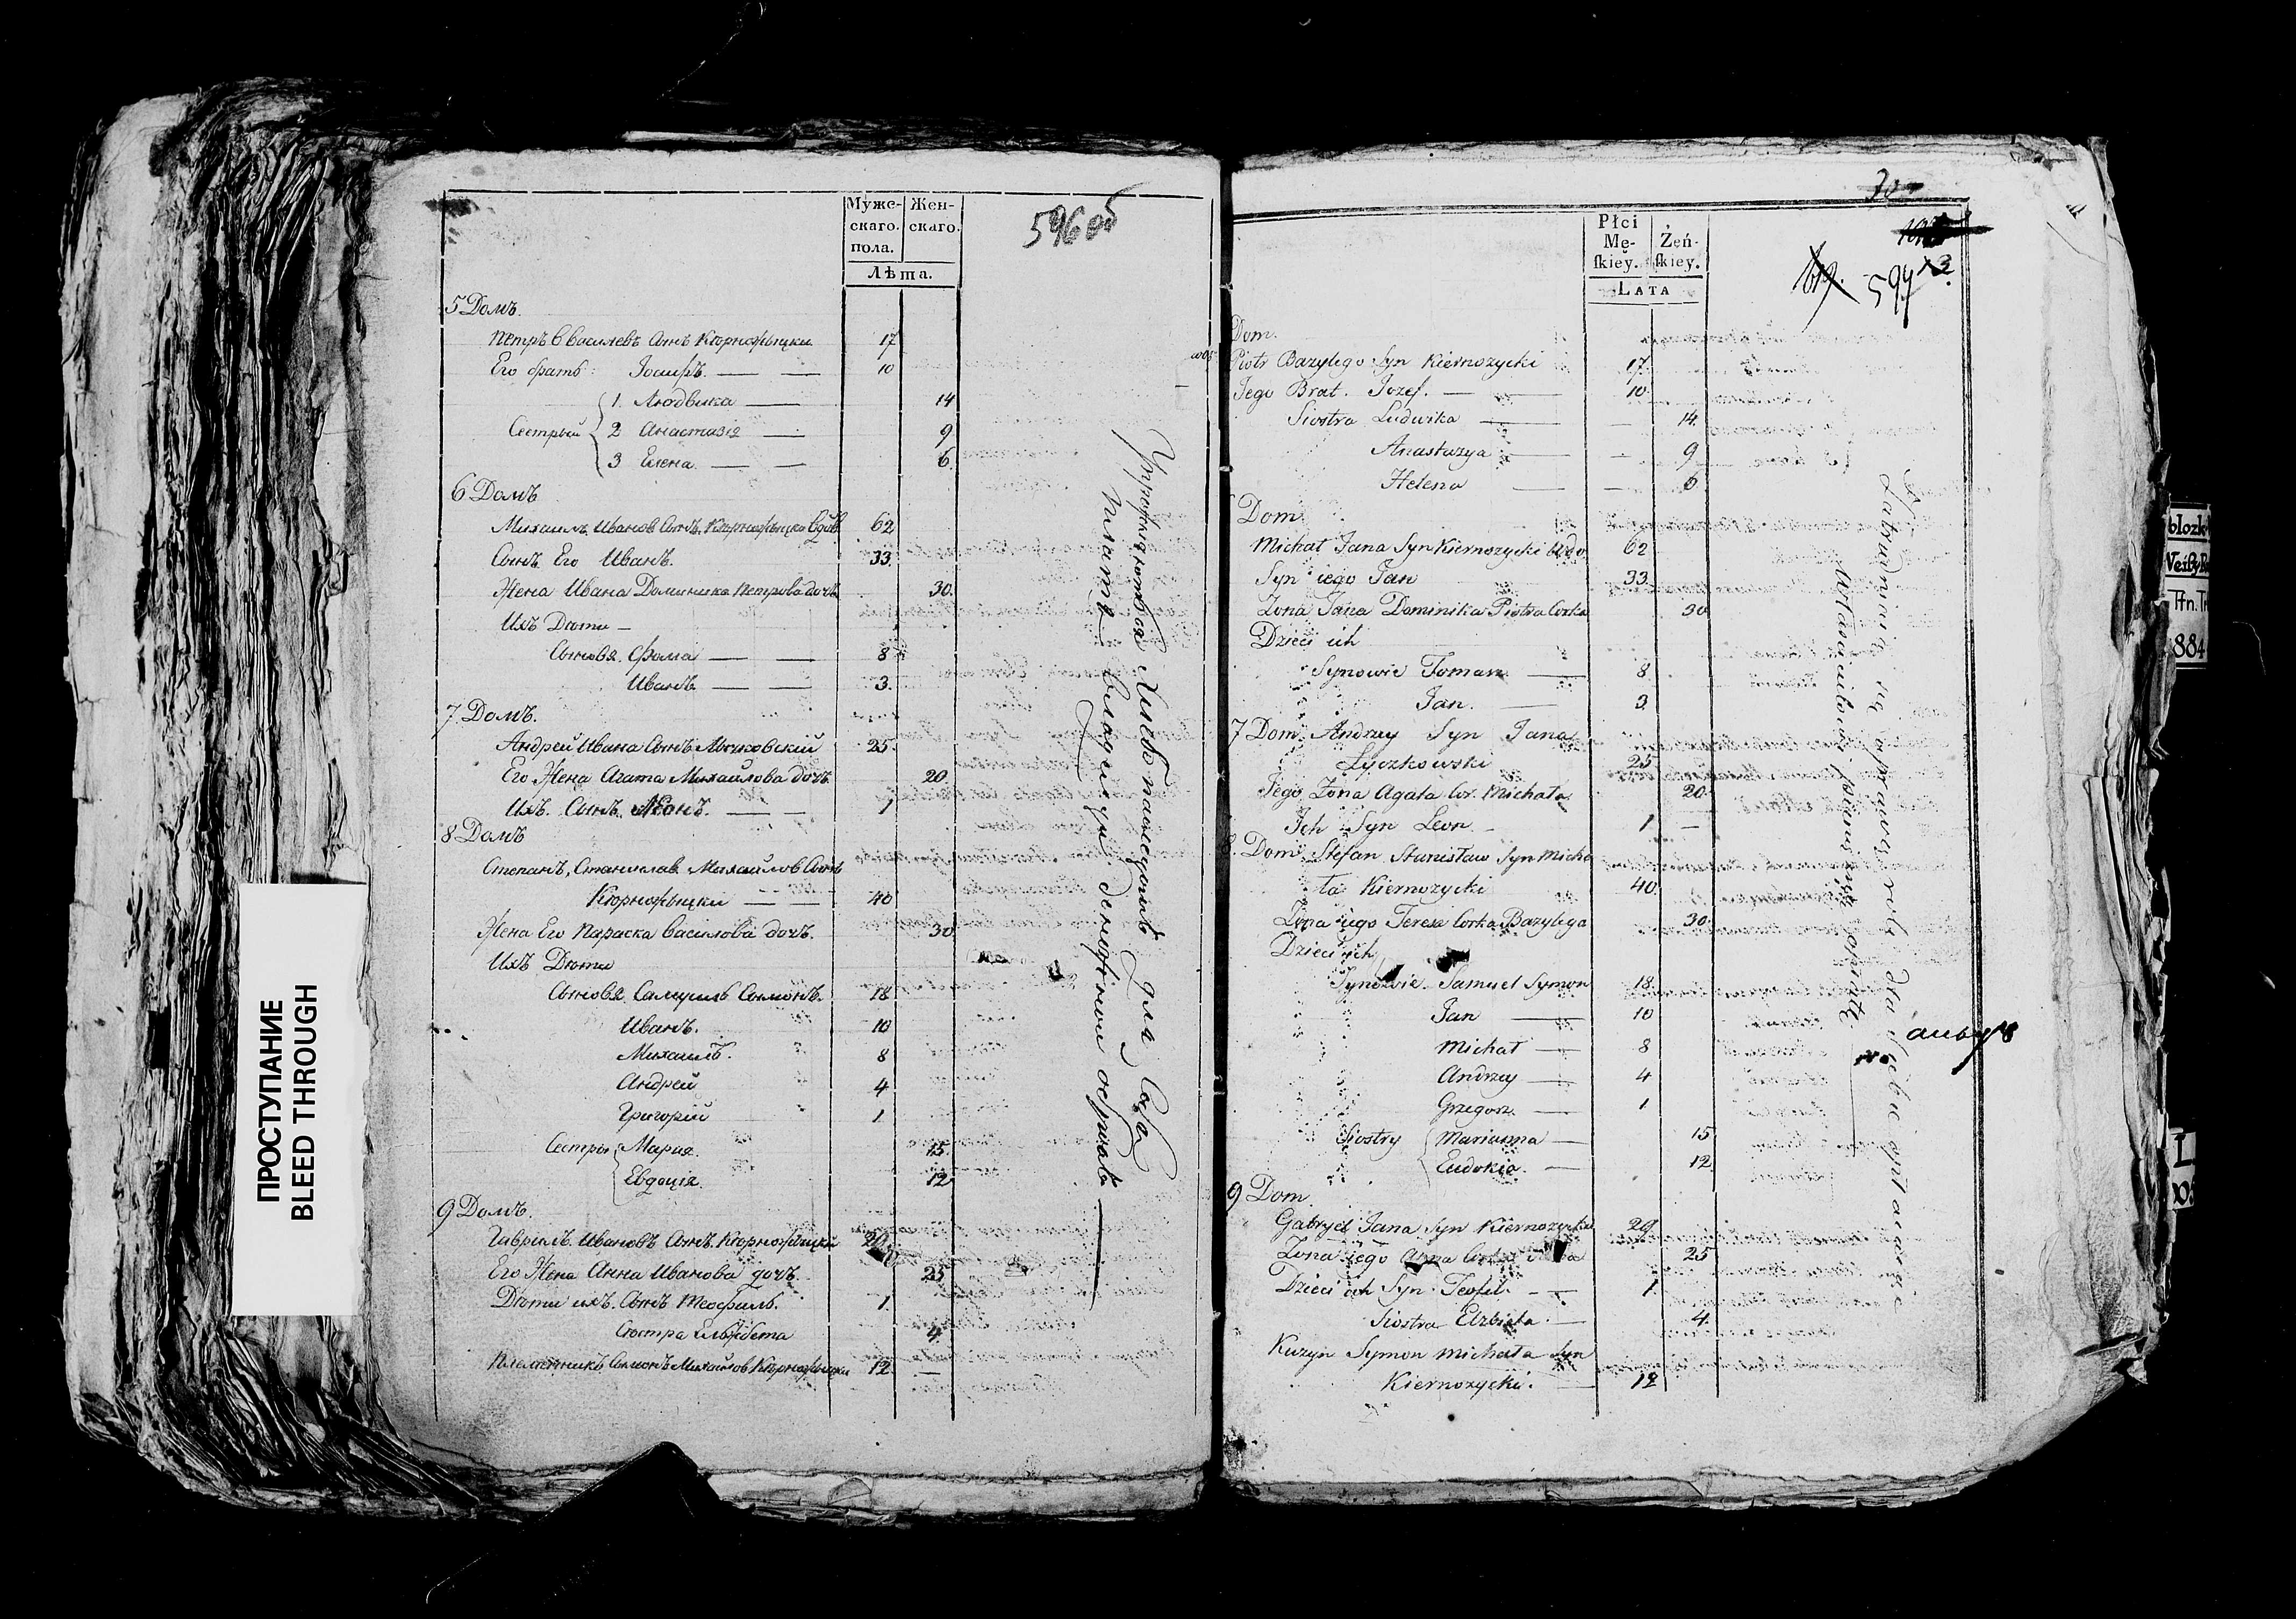 596 об
Мужескаго пола.
Женскаго.
Лѣта.
5 Домъ.
Петръ Василевъ Сынъ Кѣрножыцки 17
Его братъ: Іосифъ. — — 10
1. Людвика — 14
Сестры 2 Анастазія — 9
3 Елена. — — 6
6 Домъ
Михаилъ Иванов Сынъ Кѣрножыцки Вдов. 62
Сынъ Его Иванъ. 33
Жена Ивана Доминика Петрова дочь 30
Ихъ Дѣти —
Сыновя Фома — — 8
Иванъ — — 3
7 Домъ.
Андрей Ивана Сынъ Лычковскій 25
Его Жена Агата Михайлова дочь 20
Ихъ Сынъ Леонъ. — — 1
8 Домъ
Степанъ, Станислав Михайлов Сынъ
Кѣрножыцки — — 40
Жена Его Параска Василова дочь. 30
Ихъ Дѣти
Сыновя Самуиль Сымонъ. 18
Иванъ. 10
Михаилъ. 8
Андрей 4
Григорій 1
Сестры Марія. 15
Евдоція. 12
9 Домъ.
Гаврилъ Ивановъ Сынъ Кѣрножыцки 29
Его Жена Анна Иванова дочь. 25
Дѣти ихъ. Сынъ Теофиль. 1
Сѣстра Ельжбета 4
Племянникъ Сымонъ Михайлов Кѣрножыцки 12 —
Упражняются Хлебопашеством для Себя
платят владельцу денежной оброкъ
30
597
Płci Męſkiey.
Żeńſkiey.
LATA
Dom.
Piotr Bazylego Syn Kiernozycki 17
Jego Brat. Jozef. — — 10
Siostra Ludwika — 14
Anastazya — 9
Helena — 6
Dom
Michał Jana Syn Kiernozycki Wdo. 62
Syn iego Jan 33
Zona Jana Dominika Piotra Corka 30
Dzieci ich
Synowie Toman — 8
Jan. — 3
7 Dom Andrzey Syn Jana
Lyczkowski 25
Jego Zona Agata Cor. Michała 20
Ich Syn Leon — 1 —
Dom Stefan Stanisław Syn Micha
ła Kiernozycki 40
Zona iego Teresa Corka Bazylego 30
Dzieci ich
Synowie Samuel Symon 18
Jan — 10
Michał — 8
Andrzey — 4
Grzegorz — 1
Siostry Marianna — 15
Eudokia. — 12
9 Dom
Gabryel Jana Syn Kiernozycki 29
Zona iego Anna Corka 25
Dzieci ich Syn Teofil. — — 1
Siostra Elzbieta. 4
Kuzyn Symon Michała Syn
Kiernozycki. — 12
Zatrudnienia są uprawę roli dla siebie opłacaiąc
Własciicielowi pieniężną opłatę
ПРОСТУПАНИЕ
BLEED THROUGH
884